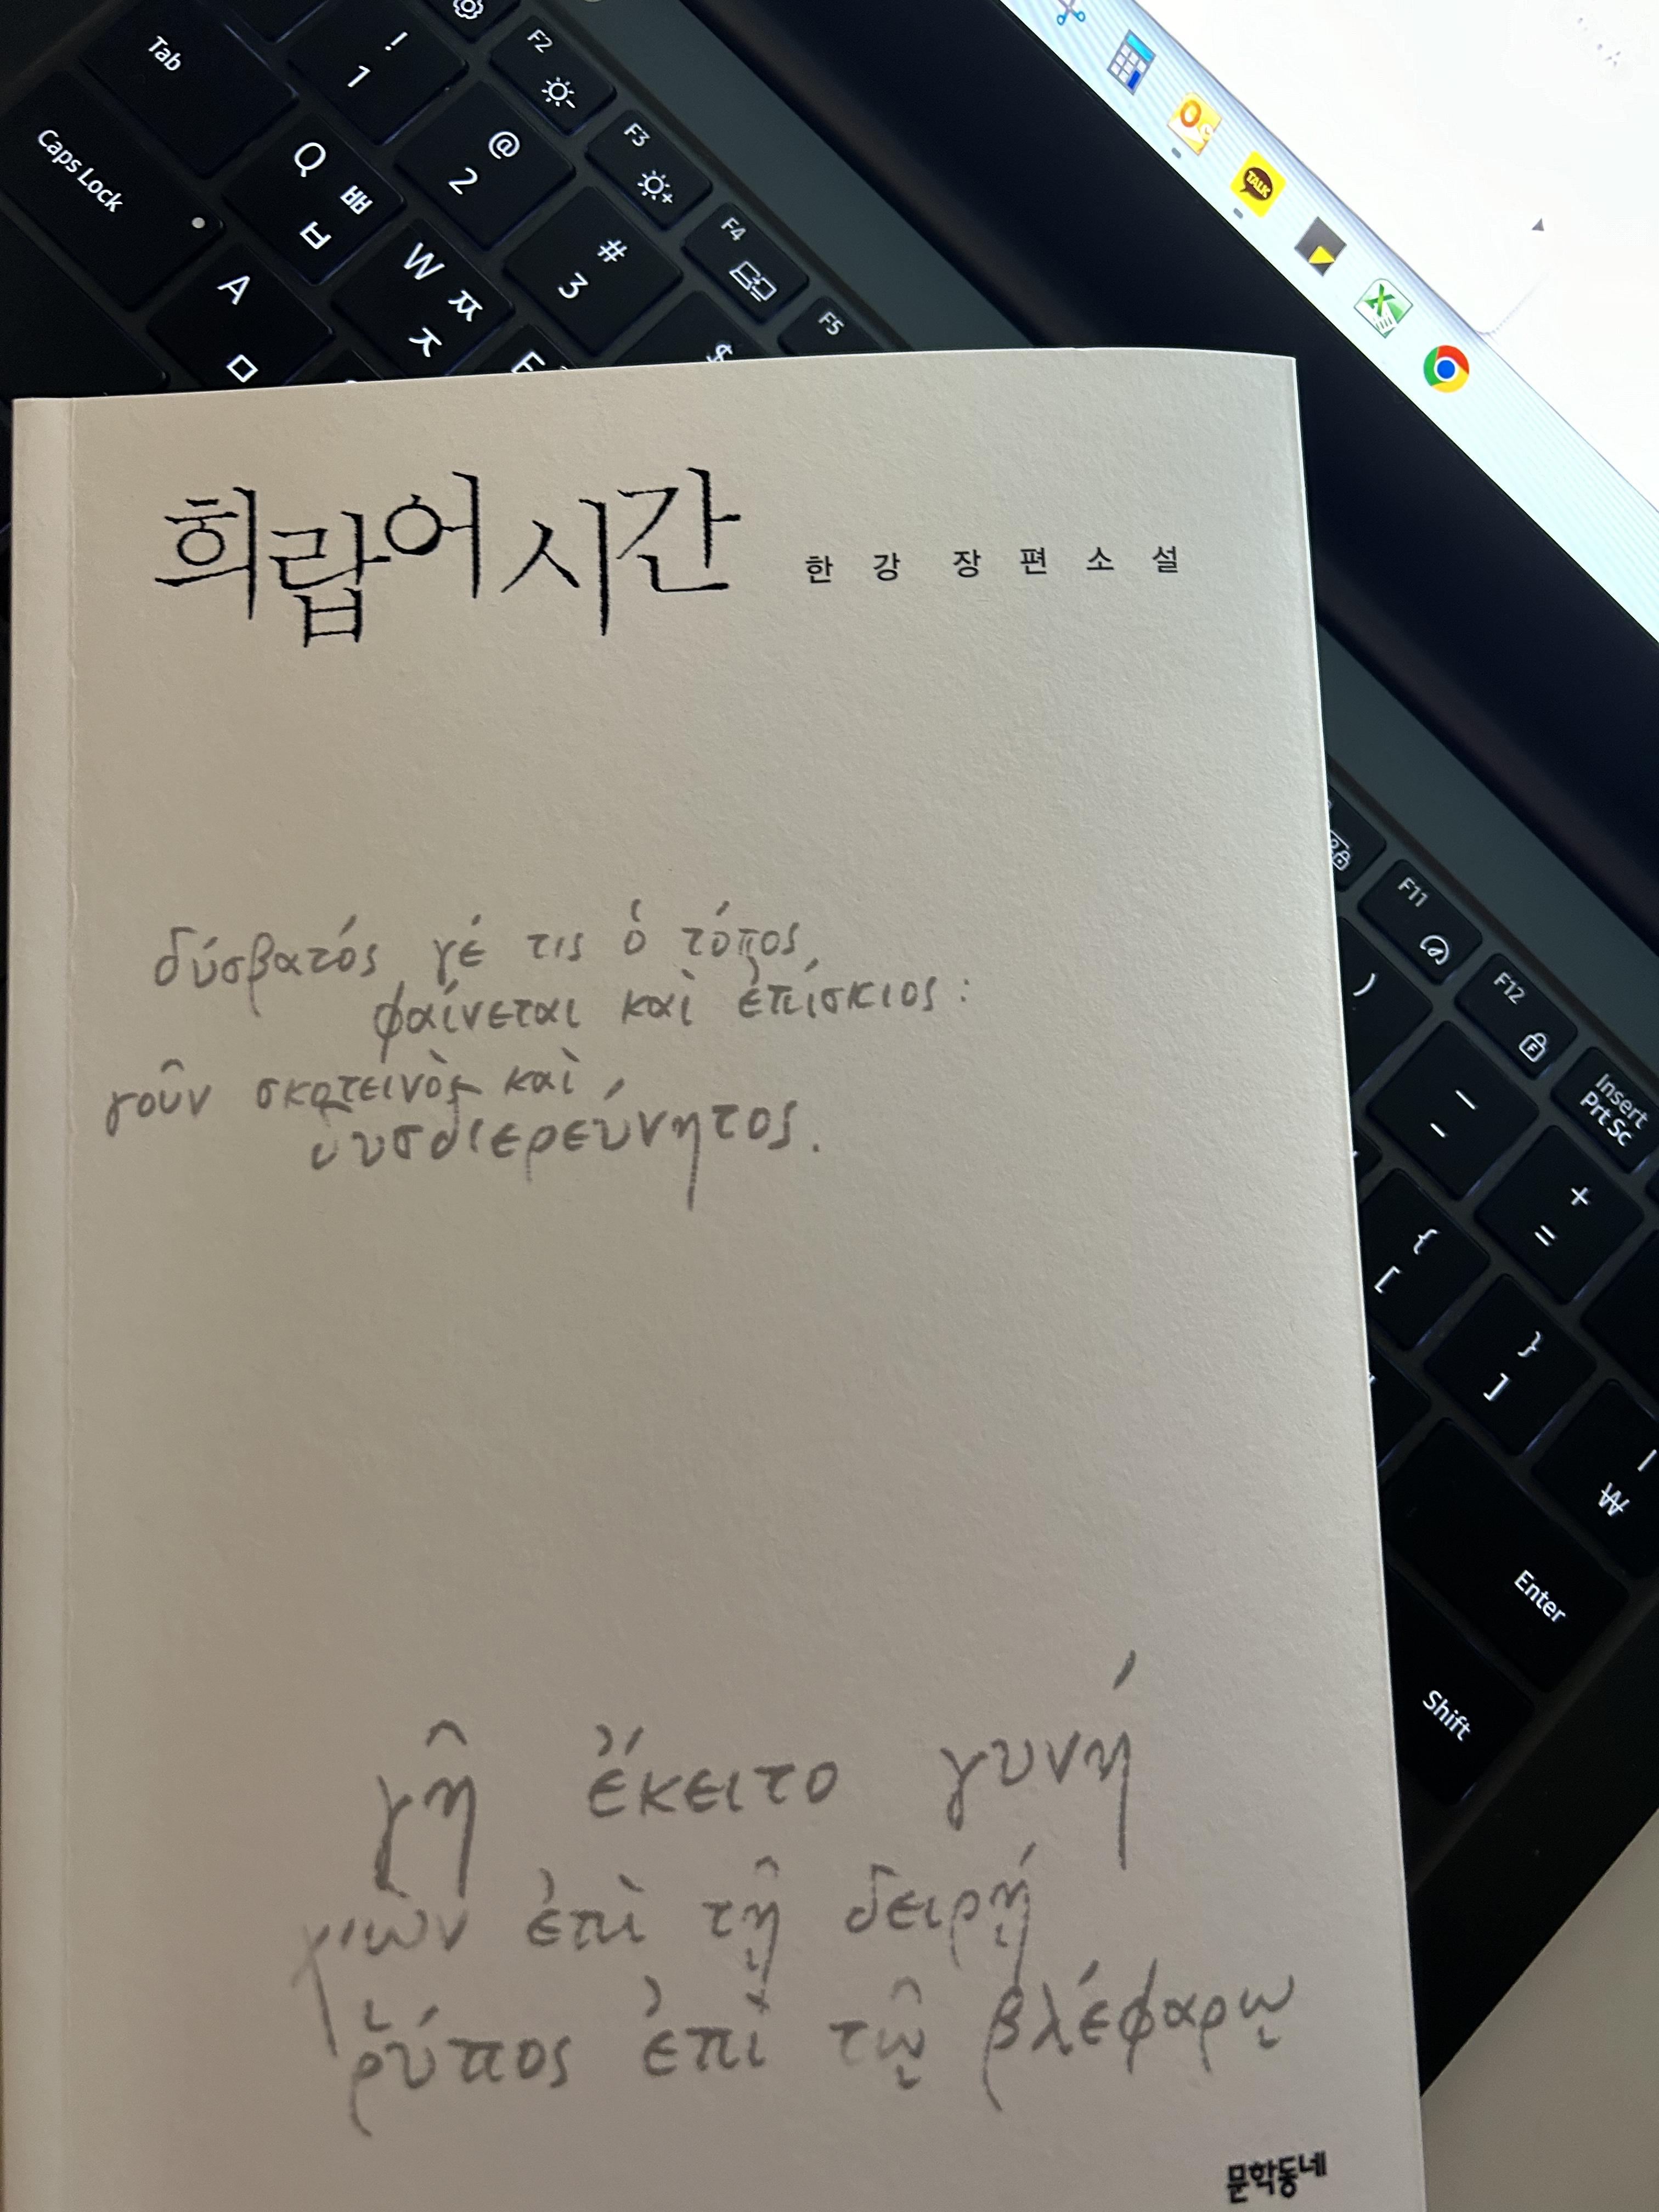 Tab
! 1
F2
Caps Lock
Q ㅃ ㅂ
@ 2
F3
A ㅁ
W ㅉ ㅈ
# 3
F4
E
$
F5
TALK
희랍어 시간 한강 장편소설
δύσβατός γέ τις ὁ τόπος
φαίνεται καὶ ἐπίσκιος:
γοῦν σκοτεινὸς καὶ
δυσδιερεύνητος.
γῆ ἔκειτο γυνή
χιὼν ἐπὶ τῇ δειρῄ
ῥύπος ἐπὶ τῷ βλέφαρῳ
문학동네
F11
)
F12
_ -
Insert
Prt Sc
+ =
{ [
} ]
| ₩
Enter
Shift